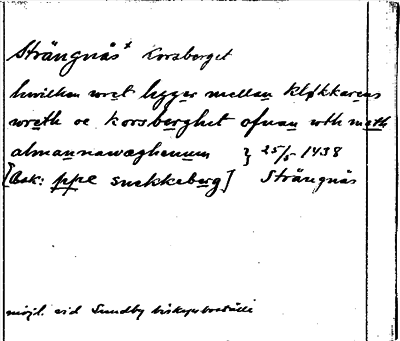 Strängnäs* Korsberget
hwilken wret legger mellan kløkkarens
wreth oc korsberghet ofvan wth meth
almannawæghenum } 25/5 1438
[Bak: ppe snekkeberg] Strängnäs
möjl. vid Sundby biskopsboställe